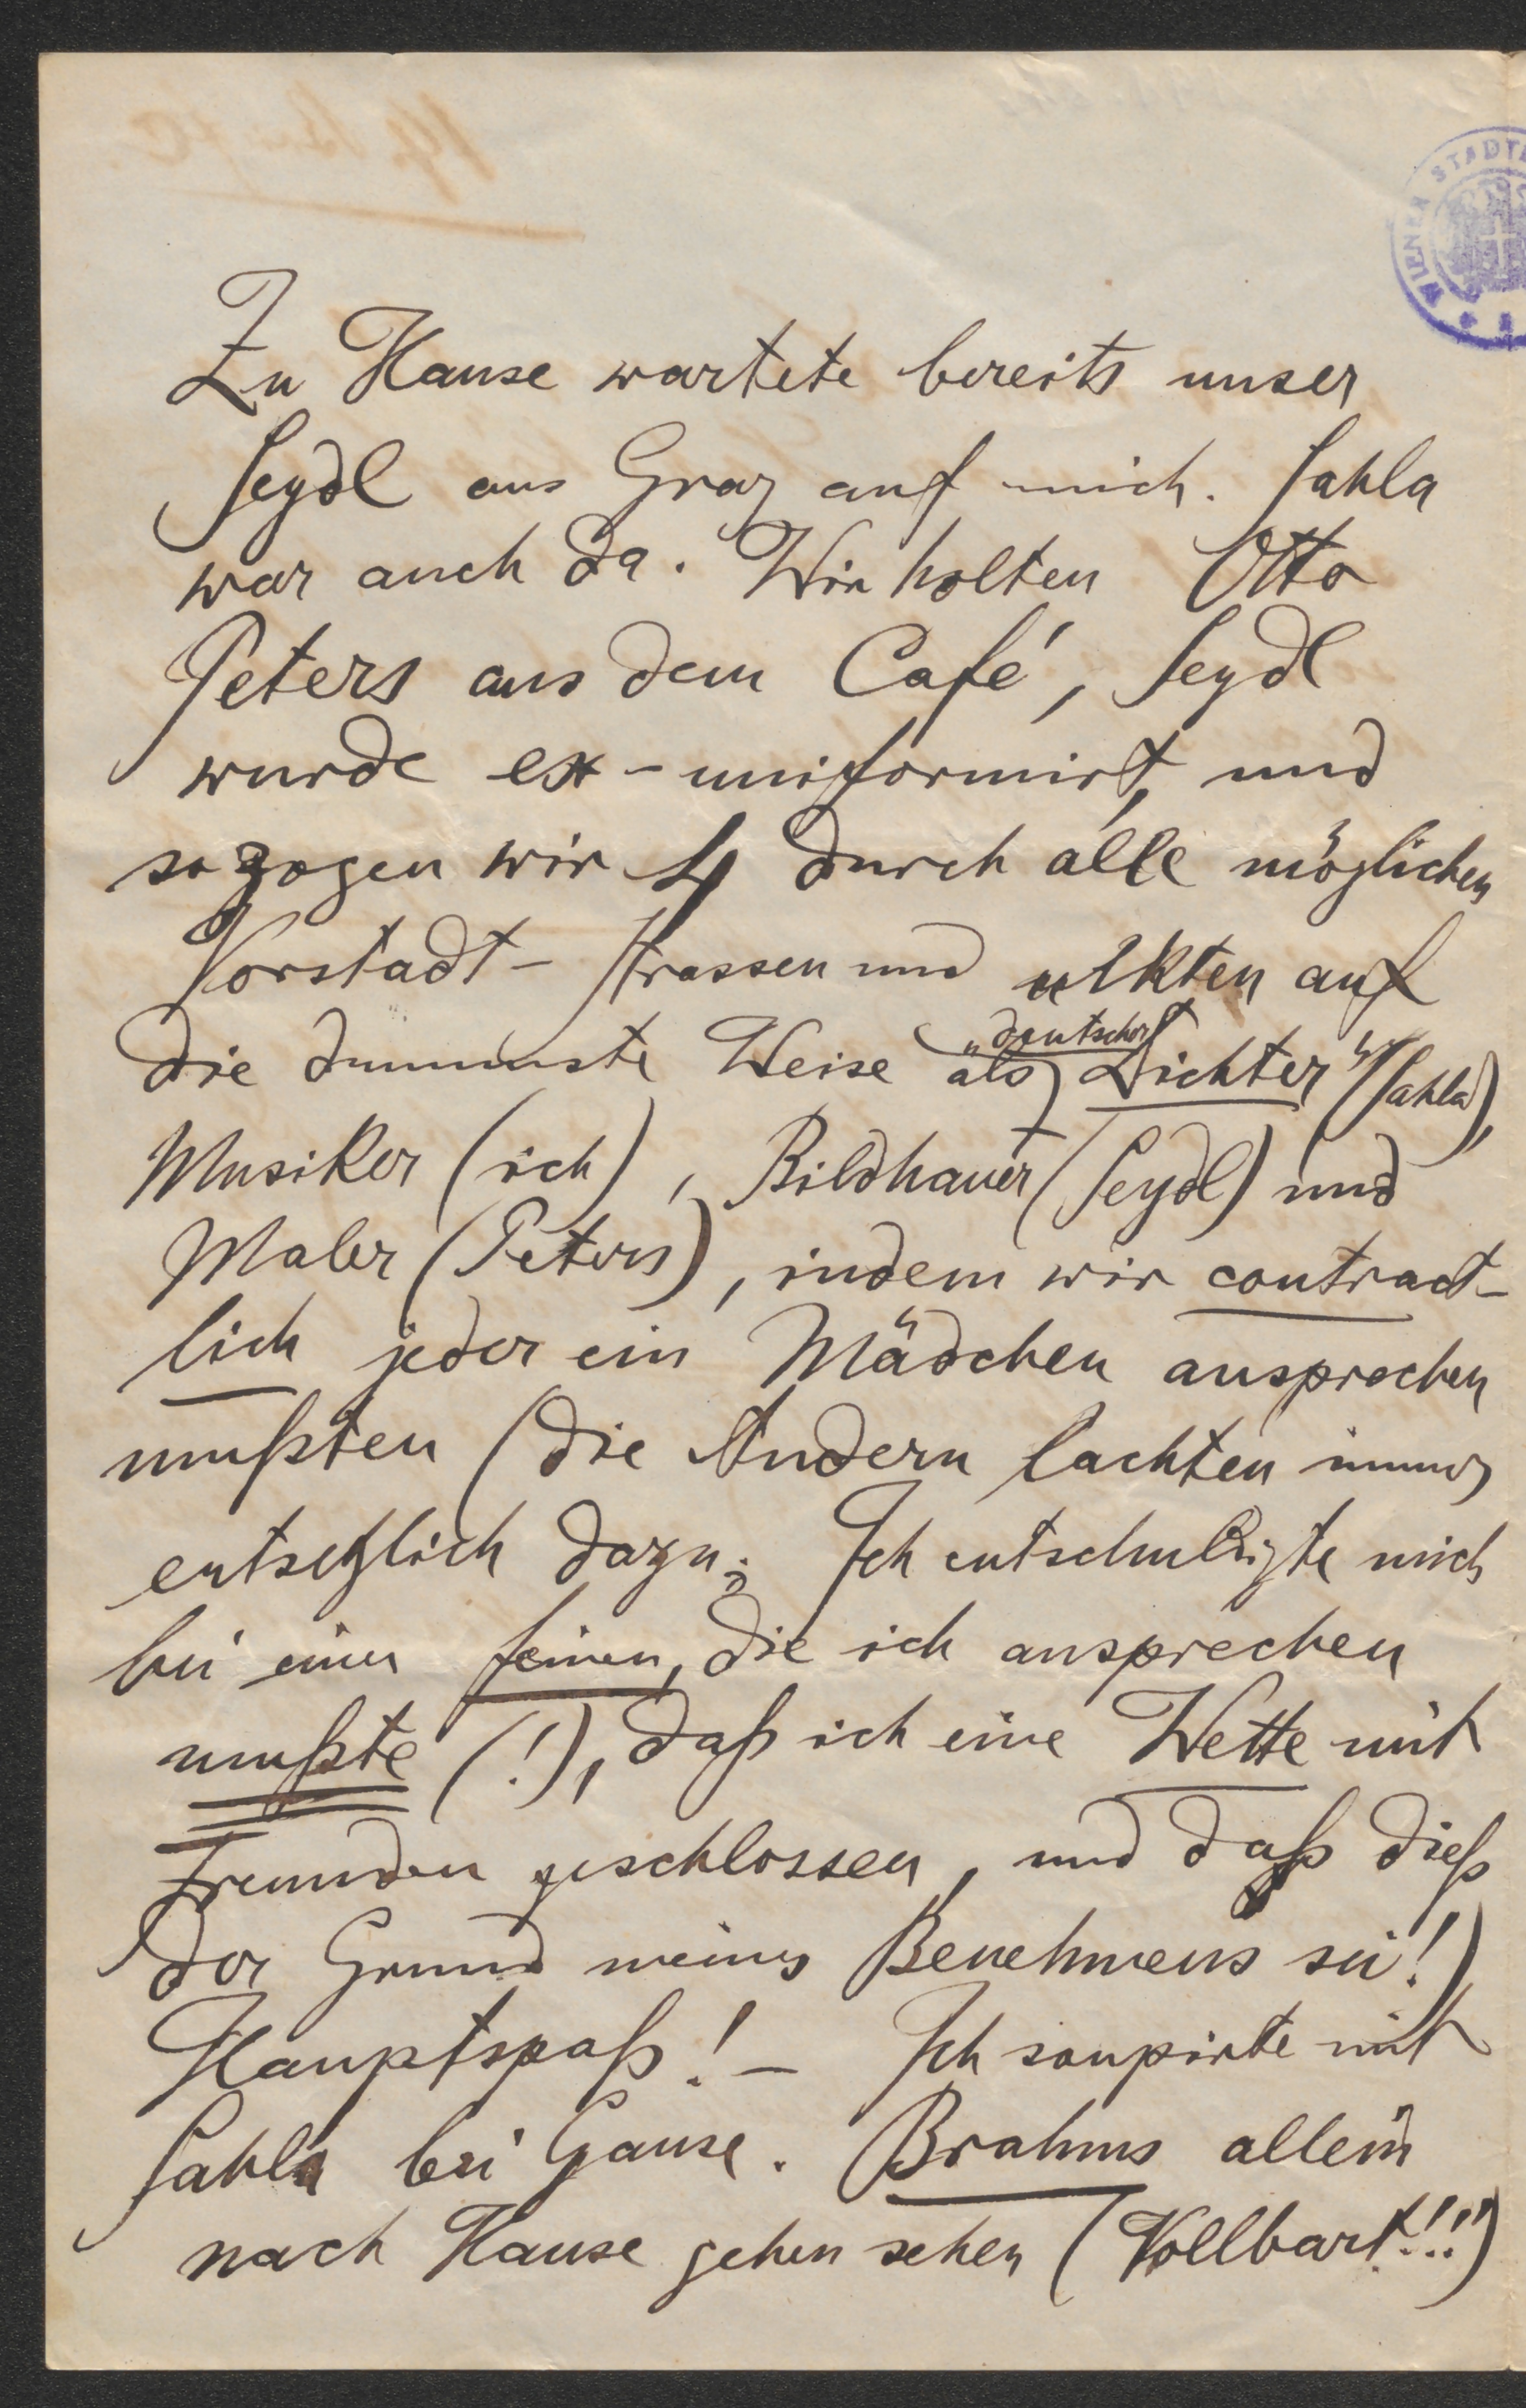 WIENER STADT
Zu Hause wartete bereits unser
Seydl aus Graz auf mich. Sahla
war auch da. Wir holten Otto
Peters aus dem Café, Seydl
wurde ex-uniformirt, und
so zogen wir 4 durch alle möglichen
Vorstadt-Strassen und ulkten auf
die dummste Weise als „deutscher Dichter“ (Sahla),
Musiker (ich), Bildhauer (Seydl) und
Maler (Peters), indem wir contract-
lich jeder ein Mädchen ansprechen
mußten (die Andern lachten immer
entsetzlich dazu; Ich entschuldigte mich
bei einer feinen, die ich ansprechen
mußte (!), daß ich eine Wette mit
Freunden geschlossen, und daß dieß
der Grund meines Benehmens sei!)
Hauptspaß! – Ich soupirte mit
Sahla bei Gause. Brahms allein
nach Hause gehen sehen (Vollbart!!!)